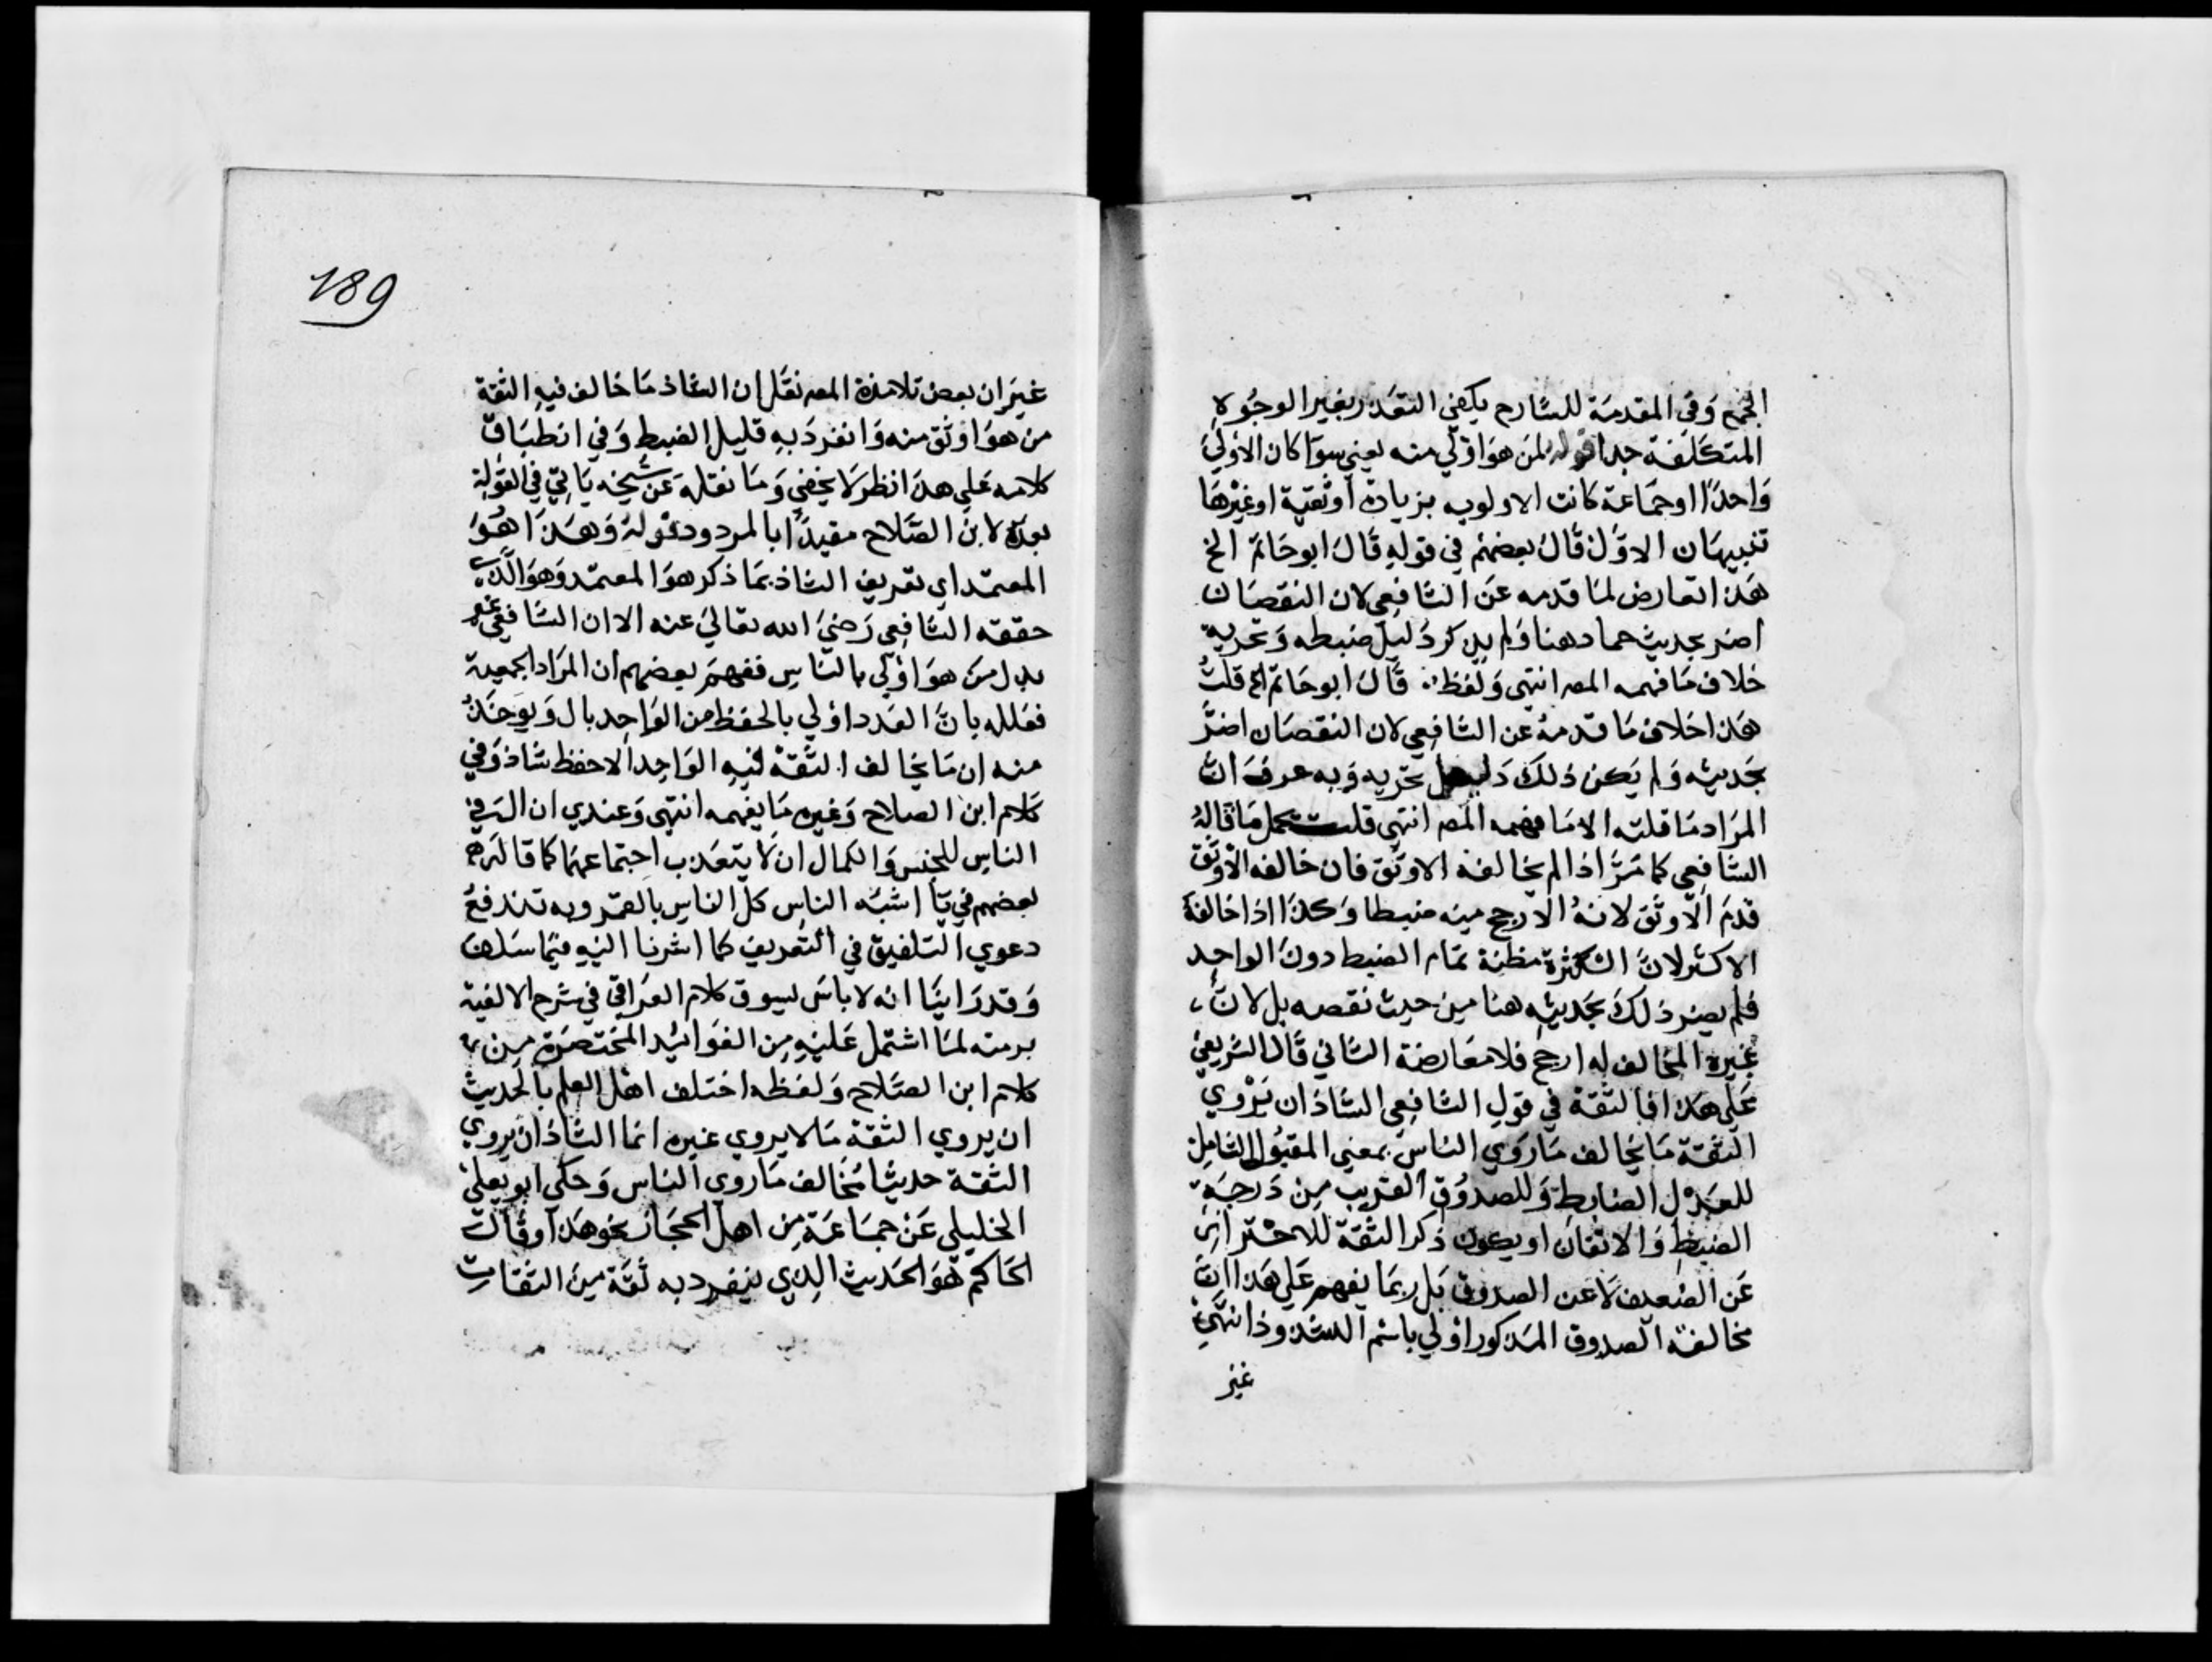 الجمع وفي المقدمة للشارح يكفي التقدر بغير الوجوه
المتكلفة جدا قوله لمن هو اولي منه يعني سوا كان الاولي
واحدا او جماعة كانت الاولويه بزيادة اوثقية او غيرها
تنبيهان الاول قال بعضهم في قوله قال ابو حاتم الخ
هذا تعارض لما قدمه عن الشافعي لان النقصان
اضر بحديث حماد هنا ولم يذكر دليل ضبطه وتحريه
خلاف ما فهمه المص انتهى ولفظ قال ابو حاتم الخ قلت
هذا خلاف ما قدمه عن الشافعي لان النقصان اضر
بحديثه ولم يكن ذلك دليل تحريه وبه عرف ان
المراد ما قلته الا ما فهمه المص انتهى قلت يحمل ما قاله
الشافعي كما مر اذا لم يخالفه الاوثق فان خالفه الاوثق
قدم الاوثق لانه الارجح مينه ضبطا وكذا اذا خالفه
الاكثر لان الكثرة مظنة تمام الضبط دون الواحد
فلم يضر ذلك بحديثه هنا مين حيث نقصه بل لان
غيره المخالف له ارجح فلا معارضة الثاني قال الشريفي
على هذا فبا لثقة في قول الشافعي الشاذ ان يروي
الثقة ما يخالف ما روي الناس بمعني المقبول الشامل
للعدل الضابط وللصدوق القريب من درجة
الضبط والاتقان او يكون ذكر الثقة للاحتراز
عن الضعيف لا عن الصدوق بل ربما يفهم علي هذا ان
مخالفة الصدوق المذكور اولي باسم الشذوذ انتهي
غير
189
غير ان بعض تلامذة المص نقل ان الشاذ ما خالف فيه الثقة
من هو اوثق منه وانفرد به قليل الضبط وفي انطباق
كلامه علي هذا نظر لا يخفي وما نقله عن شيخه ياتي في القولة
بعده لابن الصلاح مقيدا بالمردود قوله وهذا هو
المعتمد اي تعريف الشاذ بما ذكر هو المعتمد وهو الذي
حققه الشافعي رضي الله تعالي عنه الا ان الشافعي عبر
بدل من هو اولي بالناس ففهم بعضهم ان المراد الجمعية
فعلله بان العدد اولي بالحفظ من الواحد بال ويوخذ
منه ان ما يخالف الثقة فيه الواحد الاحفظ شاذ وفي
كلام ابن الصلاح وغيره ما يفهمه انتهى وعندي ان ال في
الناس للجنس والكمال ان لا يتعذب اجتماعهما كما قاله
بعضهم في يا اشبه الناس كل الناس بالقمر وبه تندفع
دعوي التلفيق في التعريف كما اشرنا اليه فيما سلف
وقد راينا انه لا باس بسوق كلام العراقي في شرح الالفية
برمته لما اشتمل عليه من الفوائيد المختصرة مين
كلام ابن الصلاح ولفظه اختلف اهل العلم بالحديث
ان يروي الثقة ما لا يروي غيره انما الشاذ ان يروي
الثقة حديثا مخالف ما روي الناس وحكي ابو يعلي
الخليلي عن جماعة من اهل الحجاز نحو هذا وقال
الحاكم هو الحديث الذي ينفرد به ثقة مين الثقات